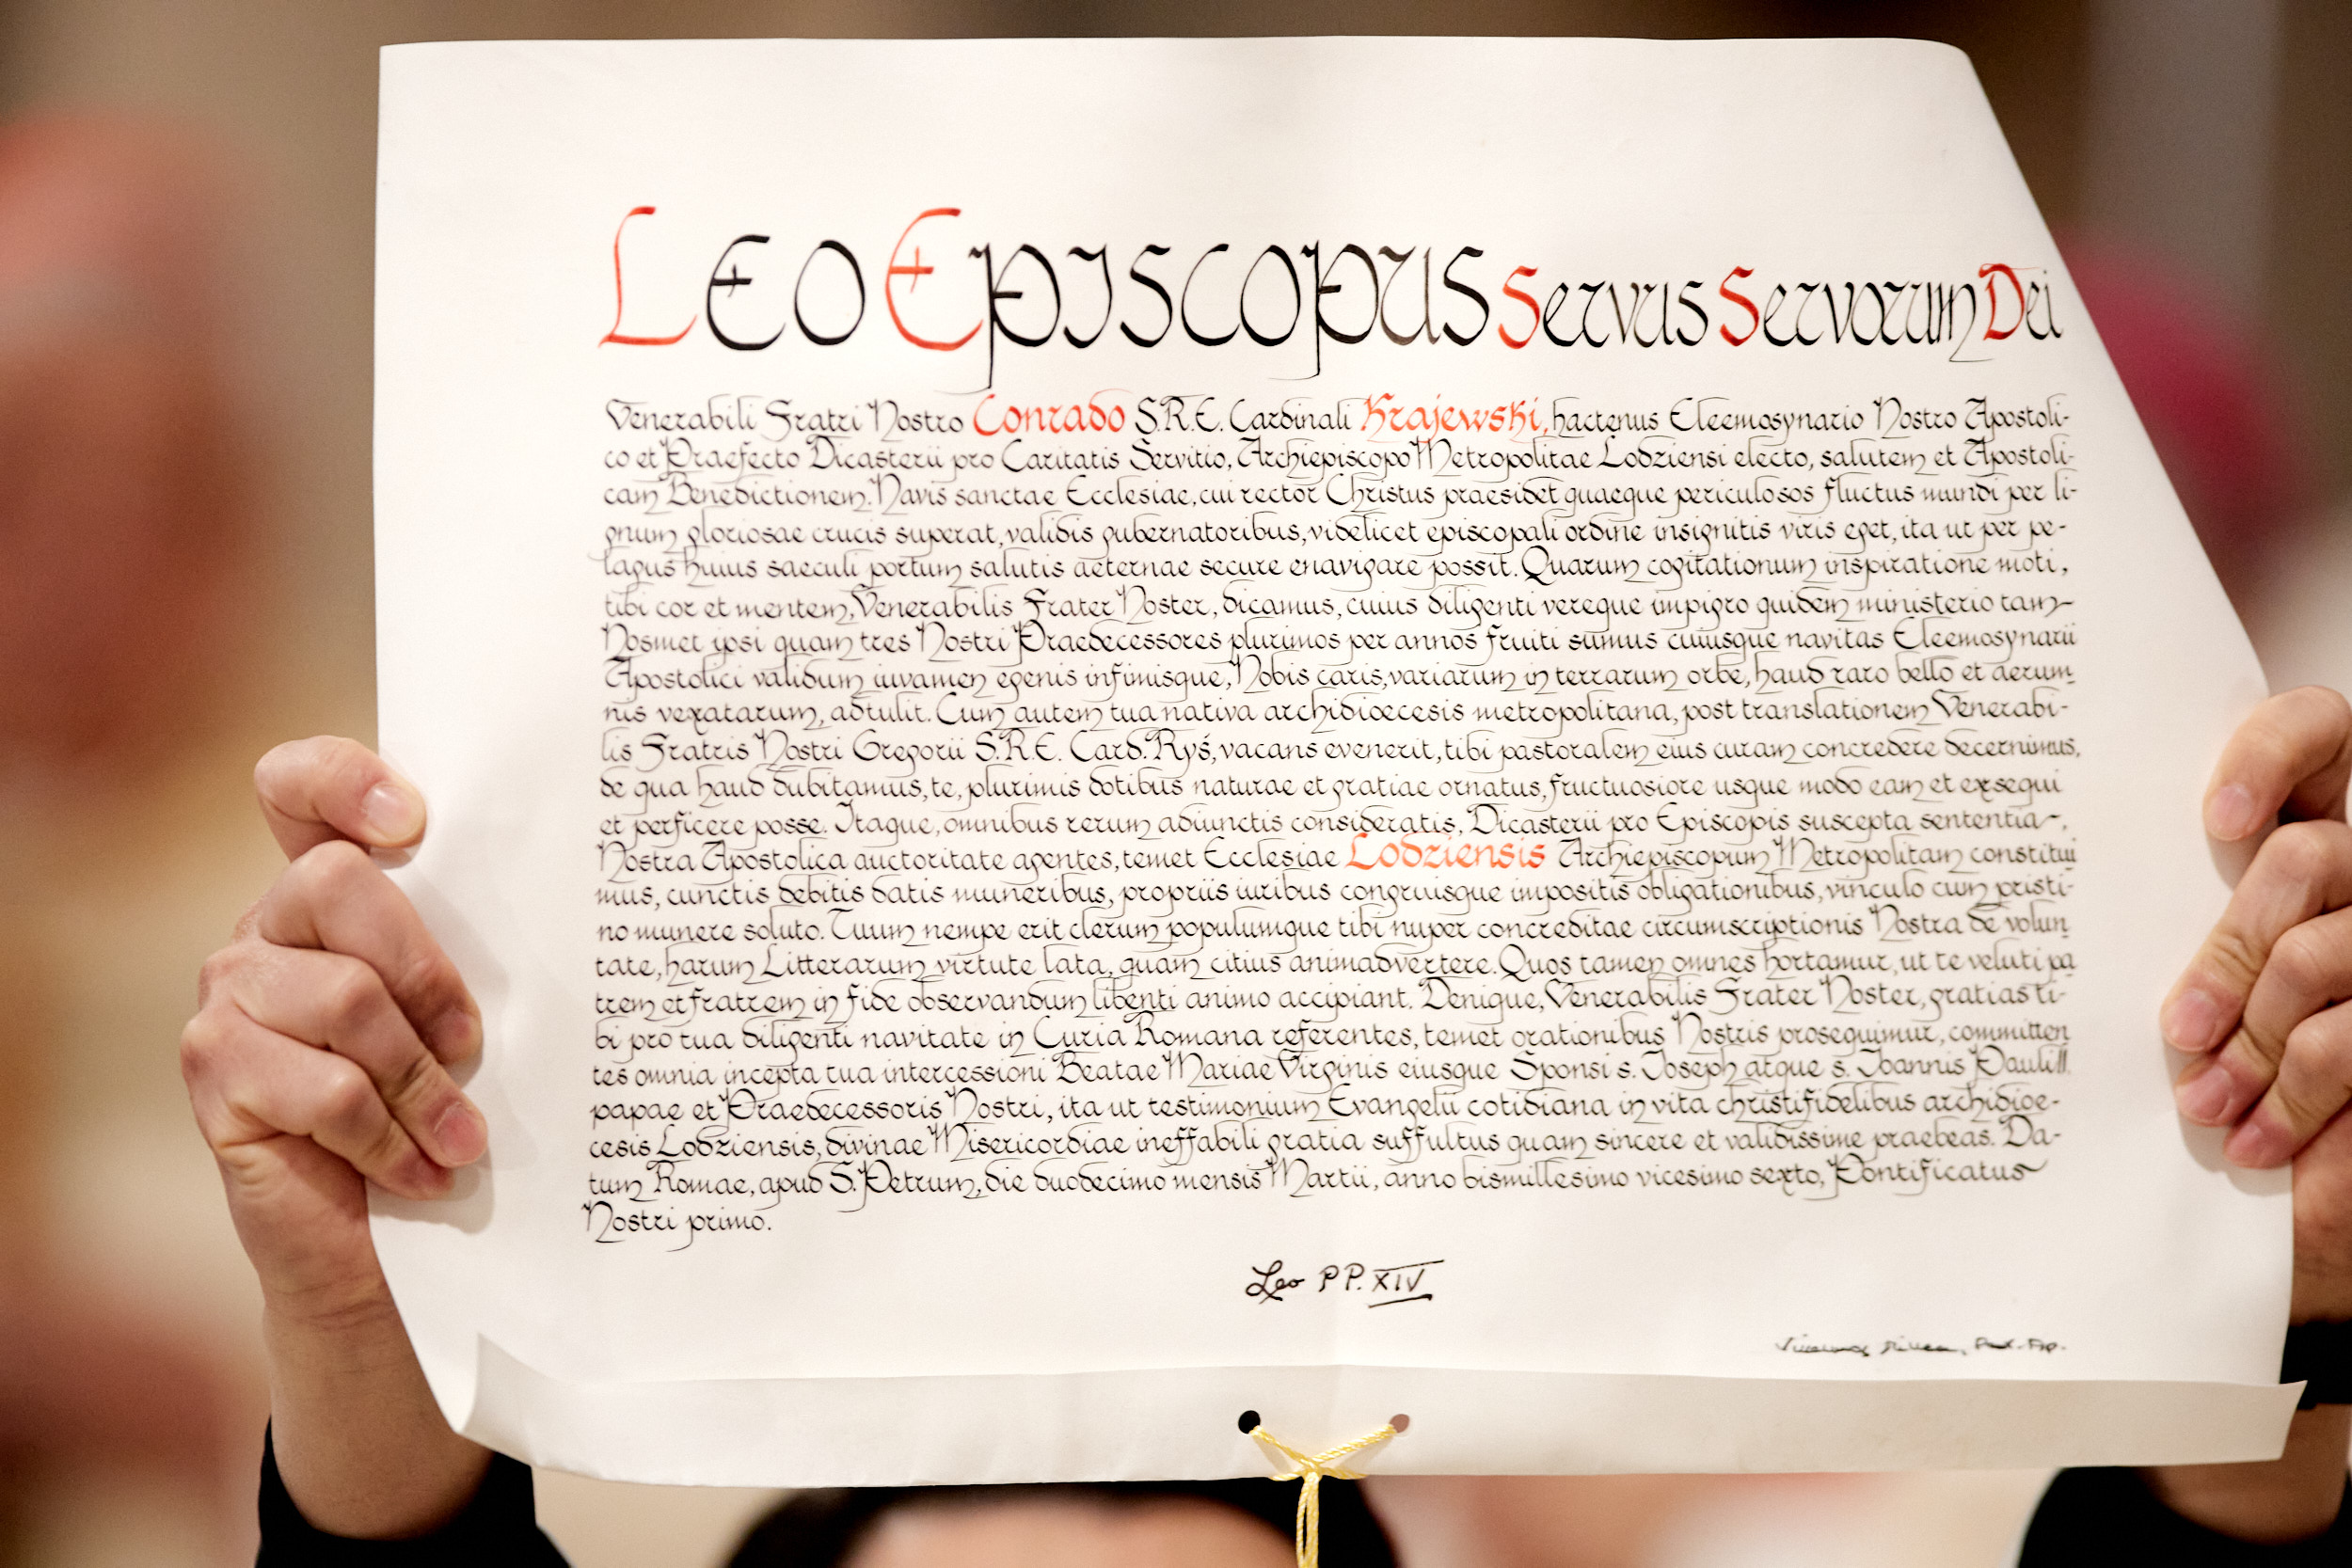 Leo Episcopus Servus Servorum Dei
Venerabili Fratri Nostro Conrado S.R.E. Cardinali Krajewski, hactenus Eleemosynario Nostro Apostoli-
co et Praefecto Dicasterii pro Caritatis Servitio, Archiepiscopo Metropolitae Lodziensi electo, salutem et Apostoli-
cam Benedictionem. Navis sanctae Ecclesiae, cui rector Christus praesidet quaeque periculosos fluctus mundi per li-
gnum gloriosae crucis superat, validis gubernatoribus, videlicet episcopali ordine insignitis viris eget, ita ut per pe-
lagus huius saeculi portum salutis aeternae secure enavigare possit. Quarum cogitationum inspiratione moti,
tibi cor et mentem, Venerabilis Frater Noster, dicamus, cuius diligenti vereque impigro quidem ministerio tam
Nosmet ipsi quam tres Nostri Praedecessores plurimos per annos fruiti sumus cuiusque navitas Eleemosynarii
Apostolici validum iuvamen egenis infimisque, Nobis caris, variarum in terrarum orbe, haud raro bello et aerum-
nis vexatarum, adtulit. Cum autem tua nativa archidioecesis metropolitana, post translationem Venerabi-
lis Fratris Nostri Gregorii S.R.E. Card. Ryś, vacans evenerit, tibi pastoralem eius curam concredere decernimus,
de qua haud dubitamus, te, plurimis dotibus naturae et gratiae ornatus, fructuosiore usque modo eam et exsequi
et perficere posse. Itaque, omnibus rerum adiunctis consideratis, Dicasterii pro Episcopis suscepta sententia,
Nostra Apostolica auctoritate agentes, temet Ecclesiae Lodziensis Archiepiscopum Metropolitam constitui
mus, cunctis debitis datis muneribus, propriis iuribus congruisque impositis obligationibus, vinculo cum pristi-
no munere soluto. Tuum nempe erit clerum populumque tibi nuper concreditae circumscriptionis Nostra de volun
tate, harum Litterarum virtute lata, quam citius animadvertere. Quos tamen omnes hortamur, ut te veluti pa
trem et fratrem in fide observandum libenti animo accipiant. Denique, Venerabilis Frater Noster, gratias ti-
bi pro tua diligenti navitate in Curia Romana referentes, temet orationibus Nostris prosequimur, committen
tes omnia incepta tua intercessioni Beatae Mariae Virginis eiusque Sponsi s. Ioseph atque s. Ioannis Pauli II
papae et Praedecessoris Nostri, ita ut testimonium Evangelii cotidiana in vita christifidelibus archidioe-
cesis Lodziensis, divinae Misericordiae ineffabili gratia suffultus quam sincere et validissime praebeas. Da-
tum Romae, apud S. Petrum, die duodecimo mensis Martii, anno bismillesimo vicesimo sexto, Pontificatus
Nostri primo.
Leo PP. XIV